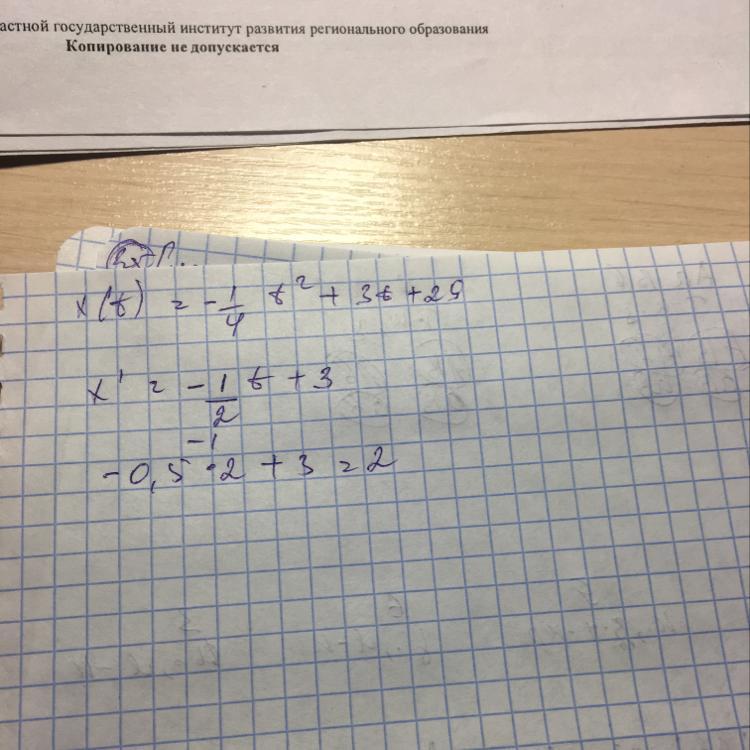 астной государственный институт развития регионального образования
Копирование не допускается
x(t) = -1/4 t² + 3t + 29
x' = -1/2 t + 3
-1
-0,5 · 2 + 3 = 2